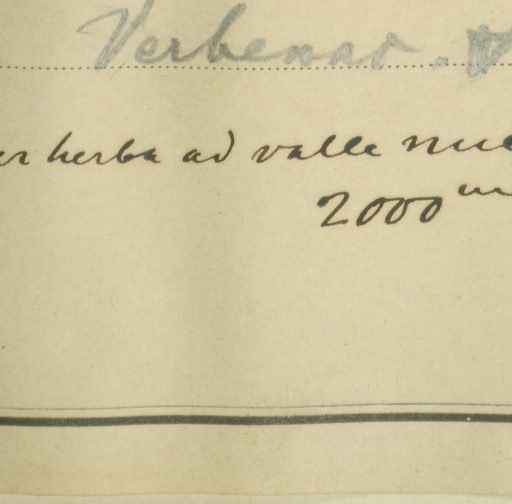 Verbenac.
er herba ad valle nue
2000 m